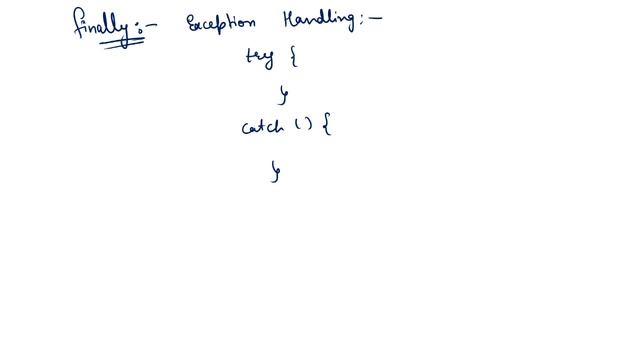 finally:- Exception Handling:-
try {
}
catch () {
}